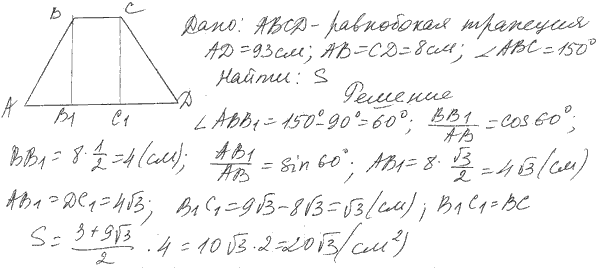 B C
A B1 C1 D
Дано: ABCD - равнобокая трапеция
AD = 93 см; AB = CD = 8 см; ∠ABC = 150°
Найти: S
Решение
∠ABB1 = 150° - 90° = 60°; BB1/AB = cos 60°;
BB1 = 8 · 1/2 = 4 (см); AB1/AB = sin 60°; AB1 = 8 · √3/2 = 4√3 (см)
AB1 = DC1 = 4√3; B1C1 = 9√3 - 8√3 = √3 (см); B1C1 = BC
S = (3 + 9√3)/2 · 4 = 10√3 · 2 = 20√3 (см²)